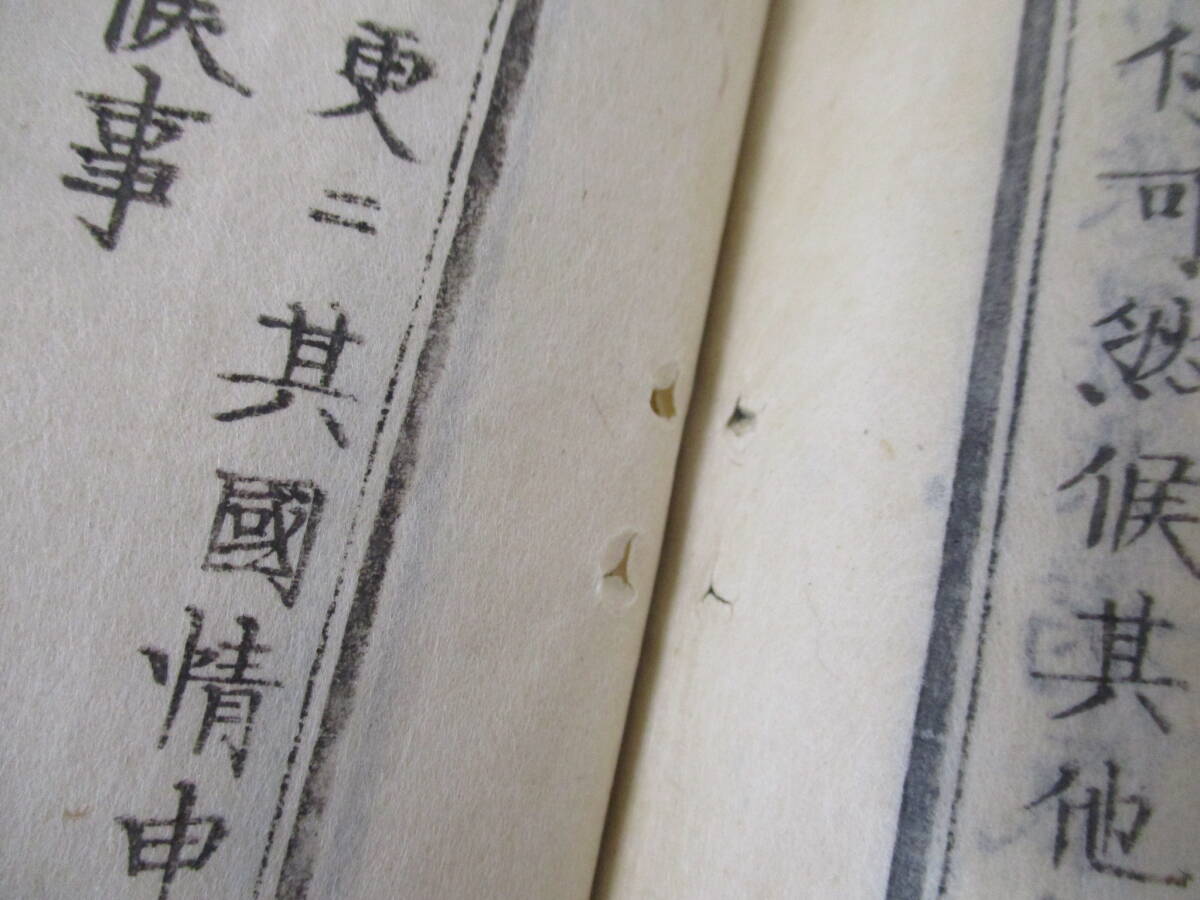 可然候其他
更ニ其國情申
候事